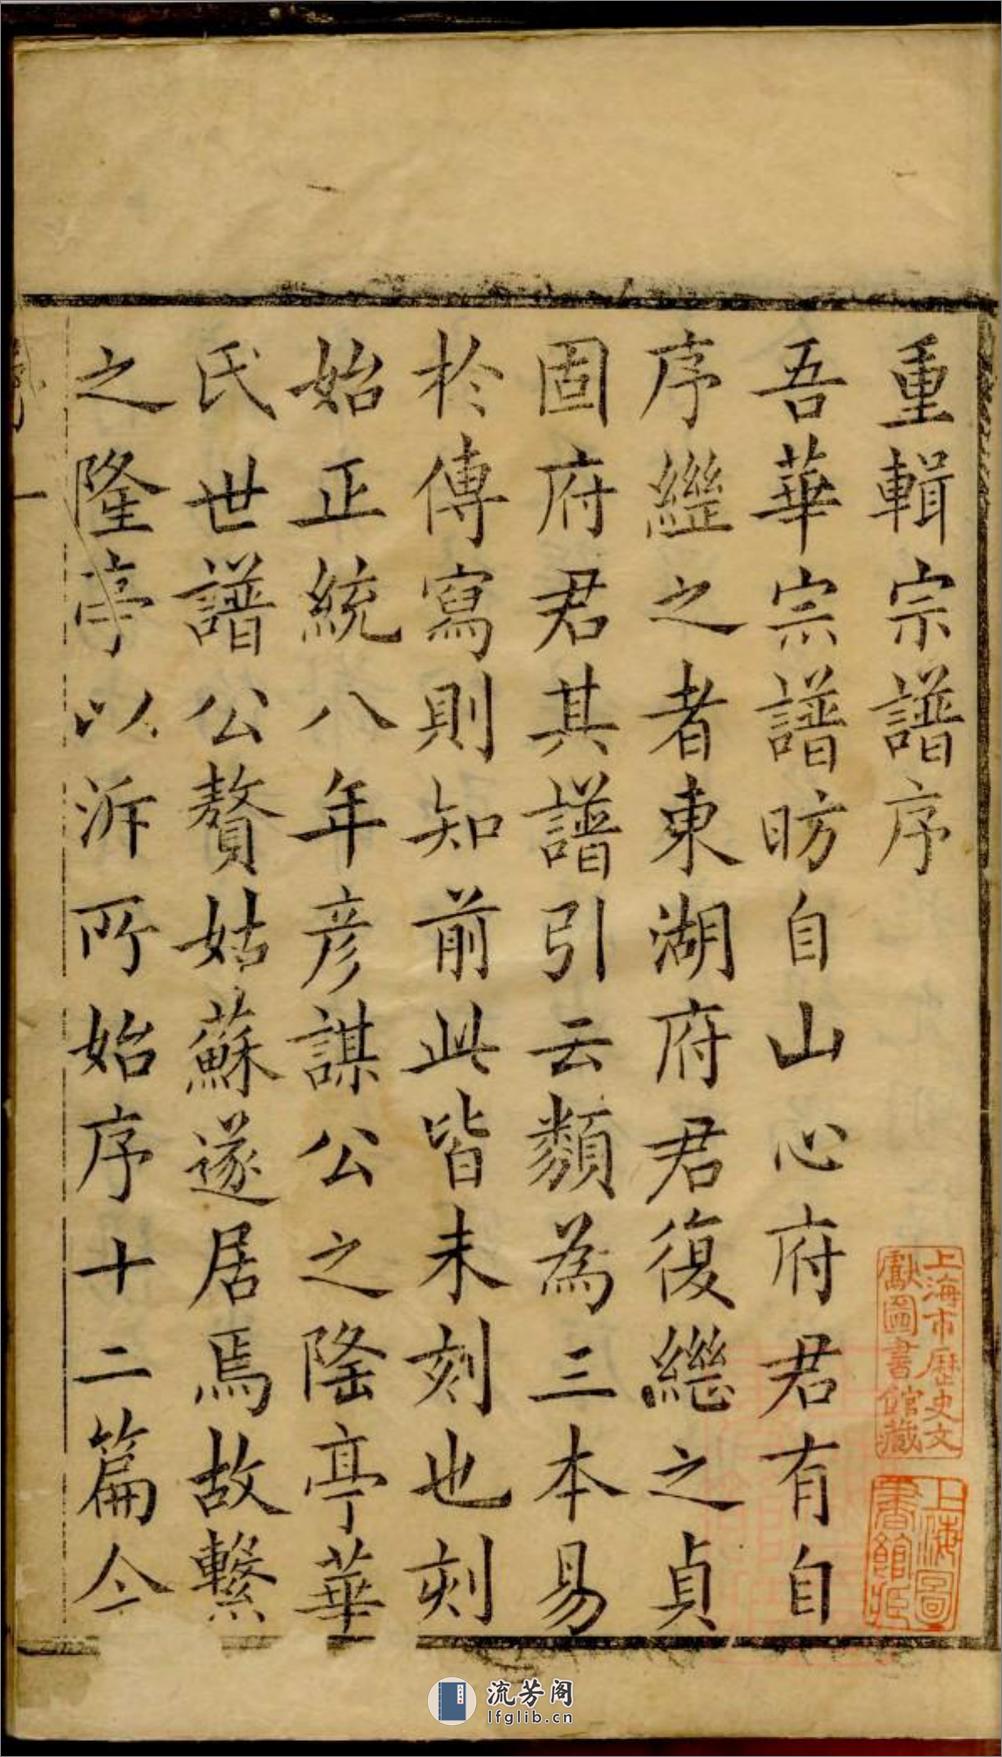 重輯宗譜序
吾華宗譜昉自山心府君有自
序繼之者東湖府君復繼之貞
固府君其譜引云類為三本易
於傳寫則知前此皆未刻也刻
始正統八年彥謀公之隆亭華
氏世譜公贅姑蘇遂居焉故繫
之隆亭以泝所始序十二篇今
上海市歷史文
獻圖書館藏
上海圖
書館藏
流芳阁
lfglib.cn